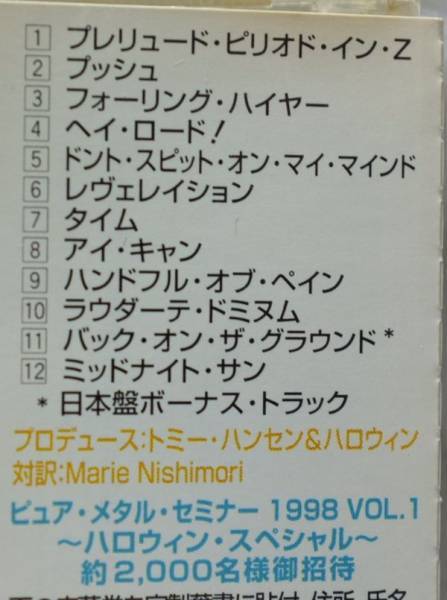 1 プレリュード・ピリオド・イン・Z
2 プッシュ
3 フォーリング・ハイヤー
4 ヘイ・ロード!
5 ドント・スピット・オン・マイ・マインド
6 レヴェレイション
7 タイム
8 アイ・キャン
9 ハンドフル・オブ・ペイン
10 ラウダーテ・ドミヌム
11 バック・オン・ザ・グラウンド*
12 ミッドナイト・サン
* 日本盤ボーナス・トラック
プロデュース:トミー・ハンセン&ハロウィン
対訳:Marie Nishimori
ピュア・メタル・セミナー 1998 VOL.1
～ハロウィン・スペシャル～
約2,000名様御招待